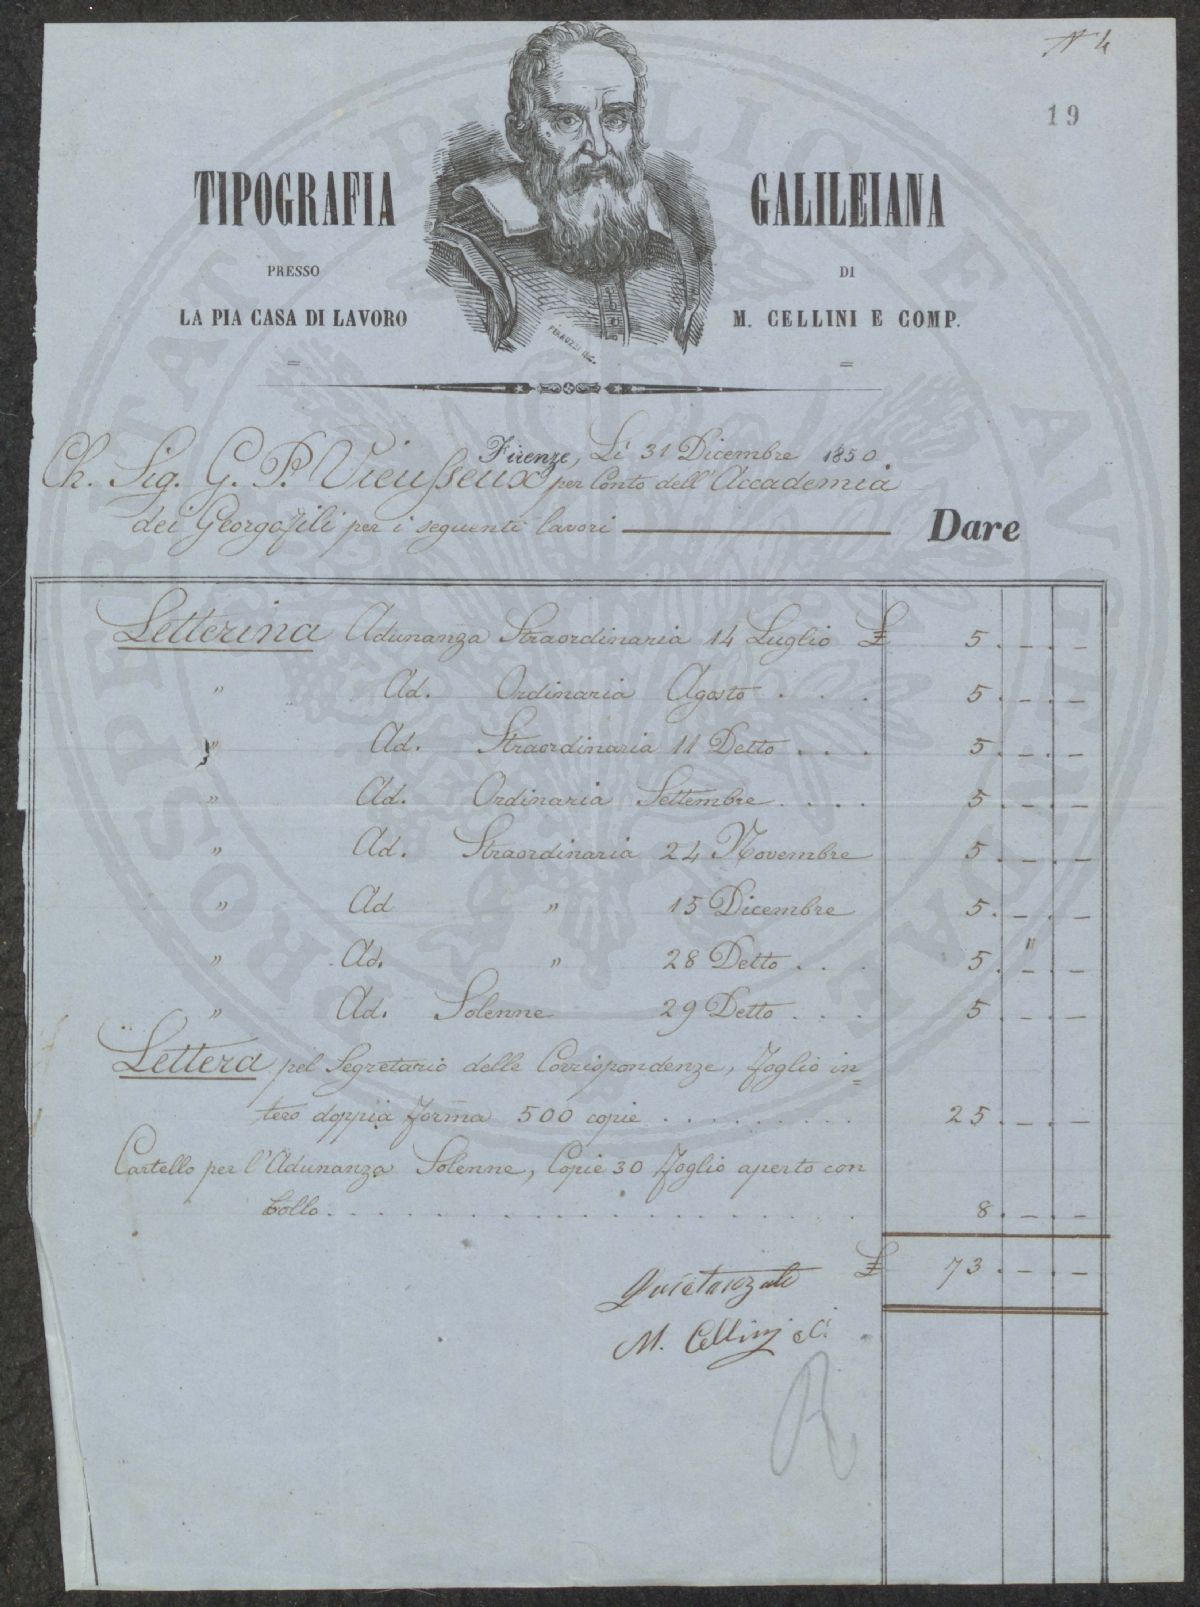 N 4
19
TIPOGRAFIA GALILEIANA
PRESSO DI
LA PIA CASA DI LAVORO M. CELLINI E COMP.
PERUZZI INC.
Firenze, Li 31 Dicembre 1850
Ch. Sig. G. P. Vieusseux per Conto dell'Accademia
dei Georgofili per i seguenti lavori Dare
Letterina Adunanza Straordinaria 14 Luglio £ 5. — . —
" Ad. Ordinaria Agosto . . . . 5. — . —
" Ad. Straordinaria 11 Detto . . . 5. — . —
" Ad. Ordinaria Settembre . . . . 5. — . —
" Ad. Straordinaria 24 Novembre 5. — . —
" Ad " 15 Dicembre 5. — . —
" Ad. " 28 Detto . . . 5. — . —
" Ad. Solenne 29 Detto . . . 5. — . —
Lettera pel Segretario delle Corrispondenze, foglio in=
tero doppia forma 500 copie . . . . . . . . . 25. — . —
Cartello per l'Adunanza Solenne, Copie 30 foglio aperto con
bollo . . . . . . . . . . . . . . 8. — . —
£ 73. — . —
Quietanzato
M. Cellini e C.
PROSPERITATI PUBLICAE AUGENDAE